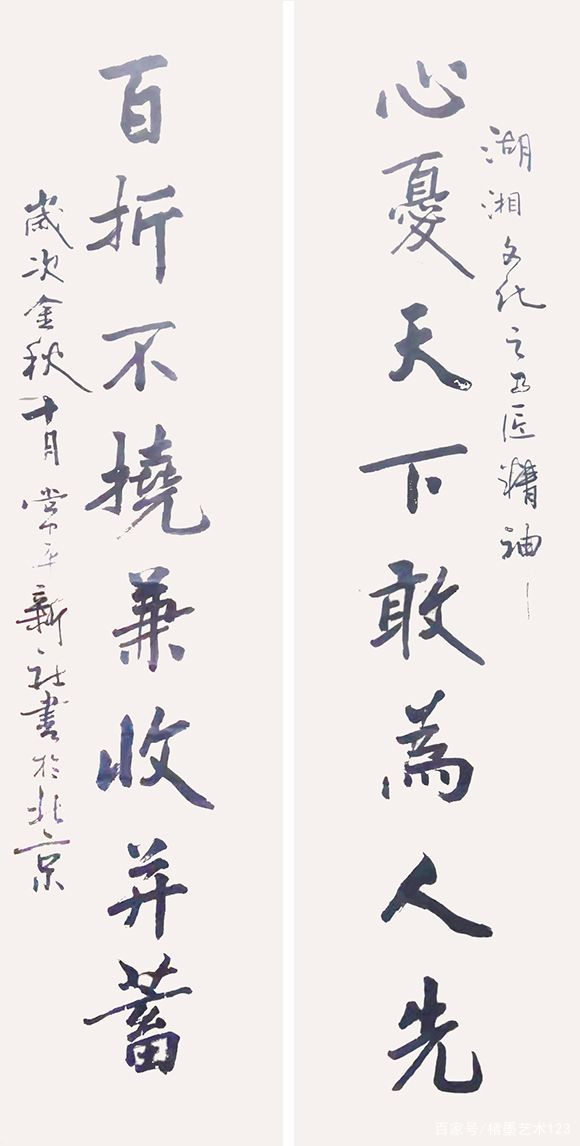 湖湘文化之工匠精神
心憂天下敢為人先
百折不撓兼收并蓄
歲次金秋十月 新社書於北京
百家号/橘墨艺术123